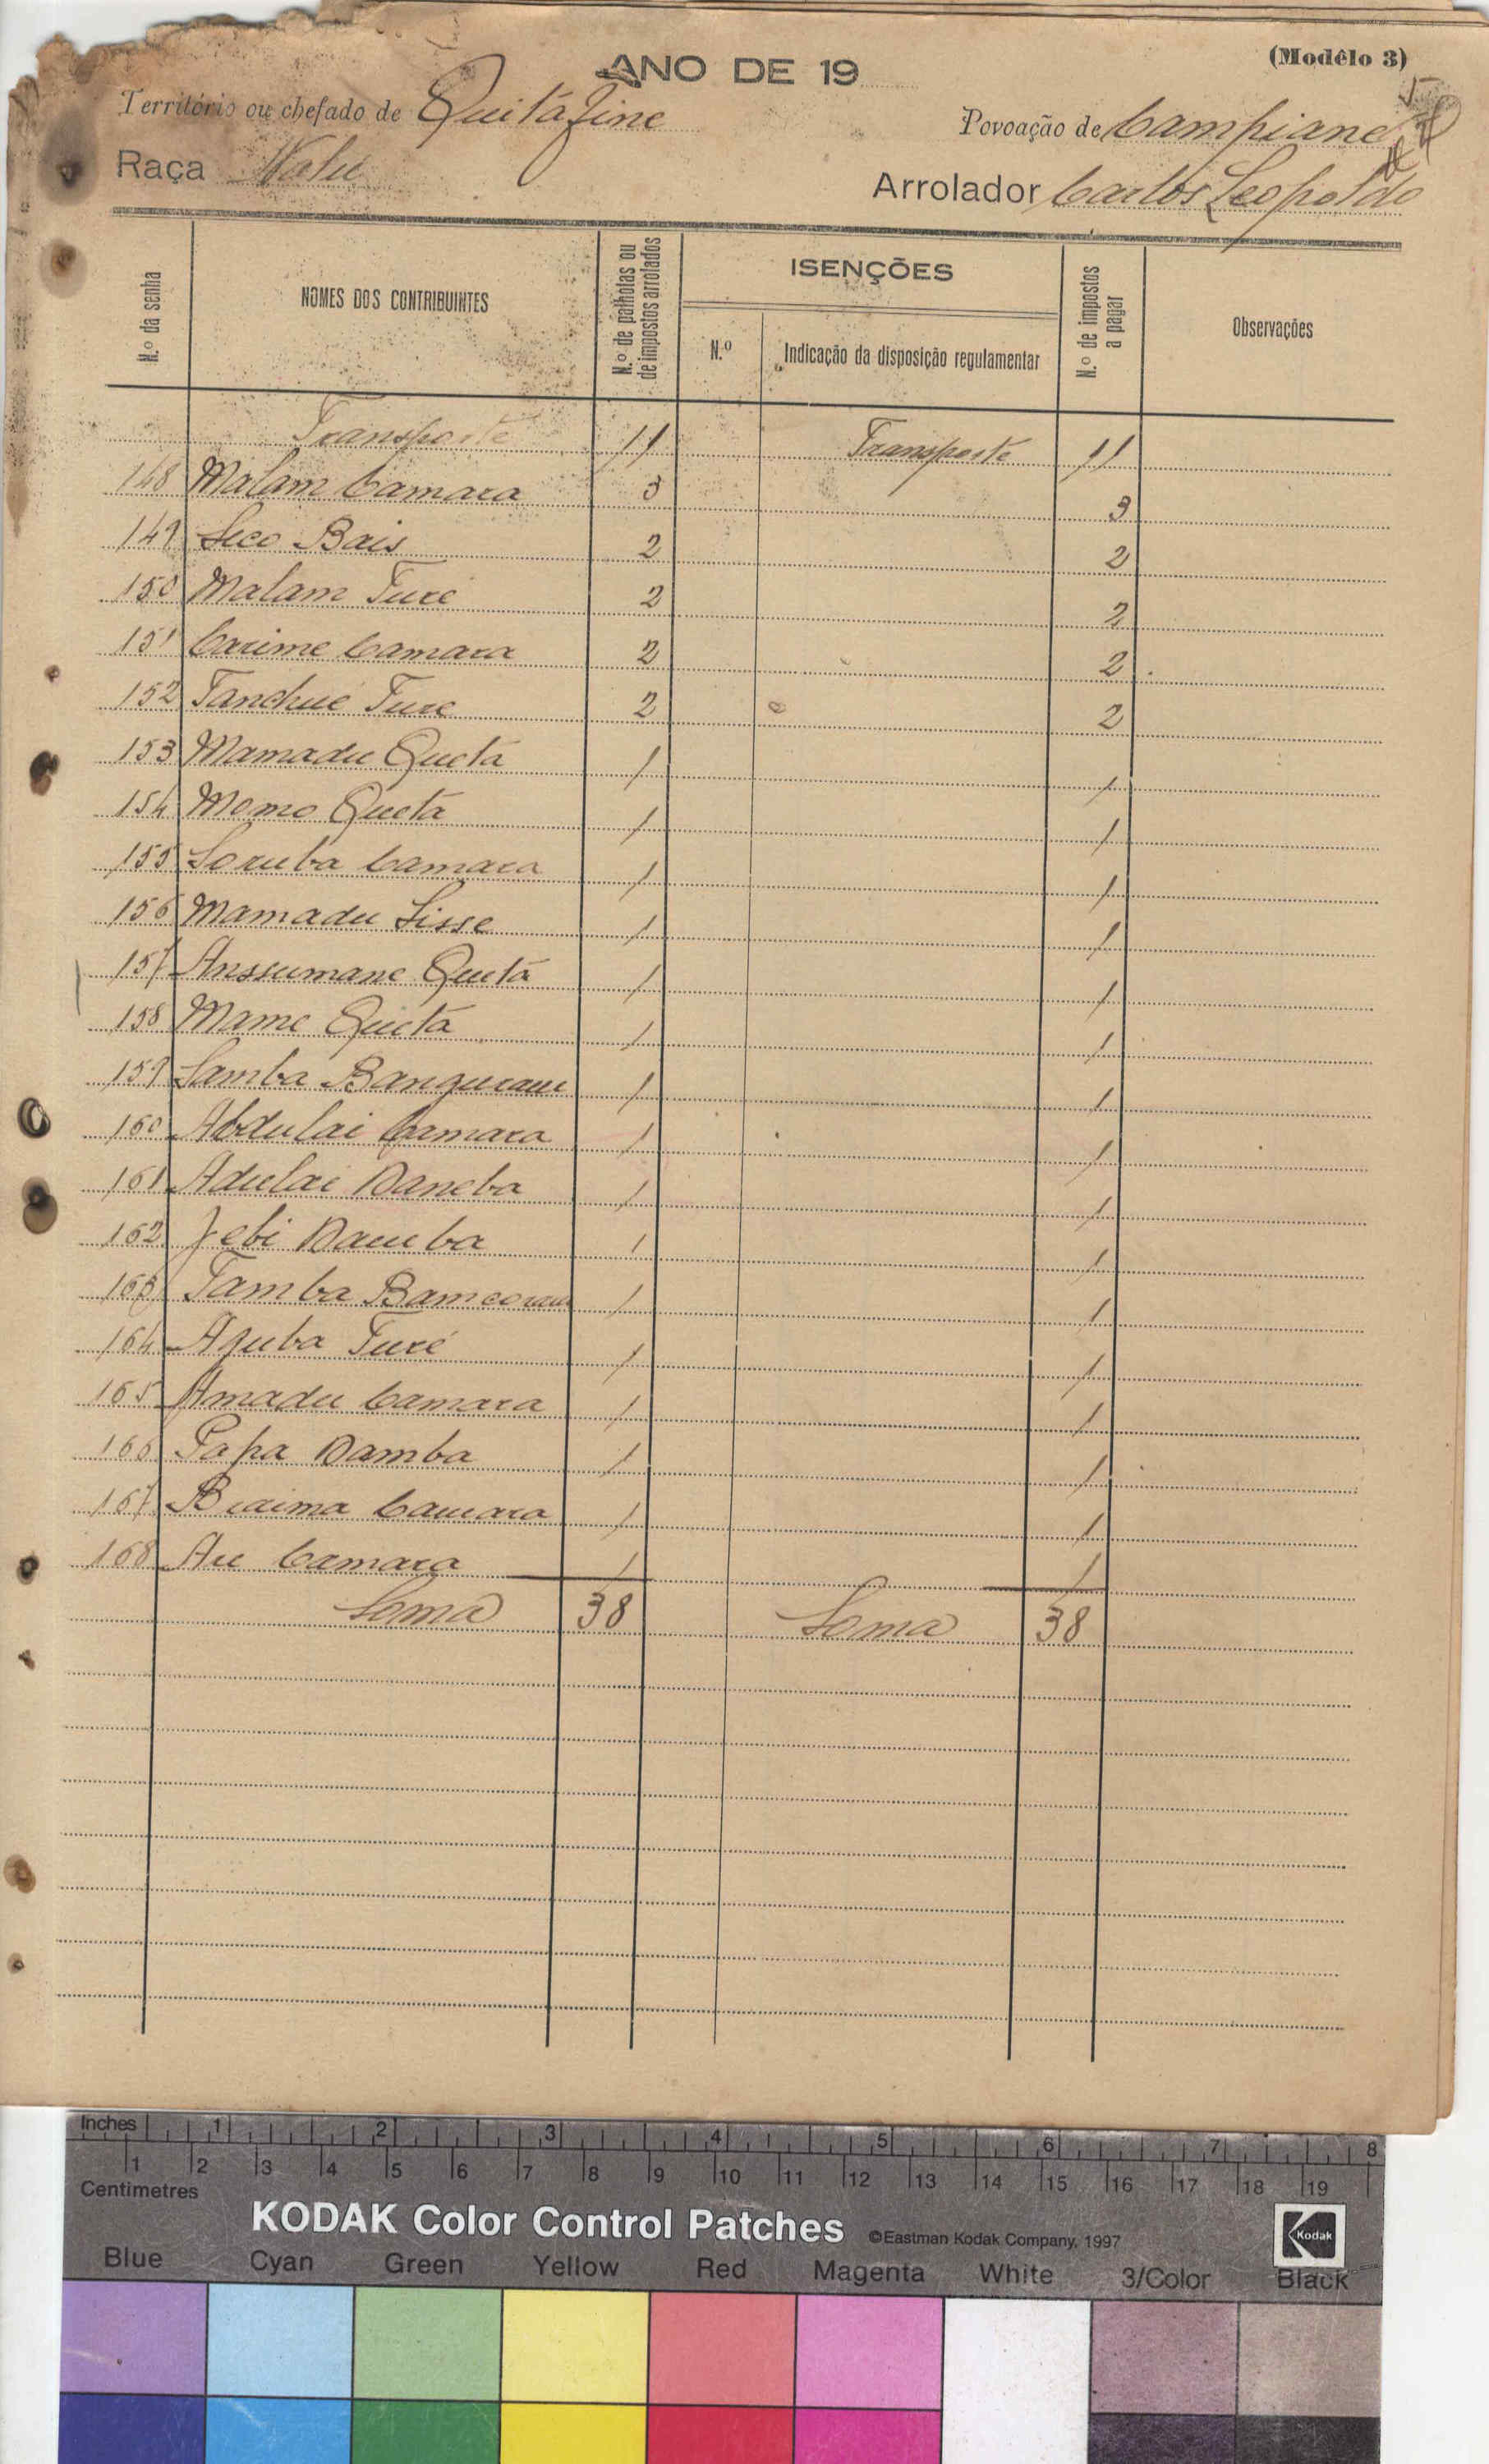 (Modêlo 3)
ANO DE 19
Território ou chefado de Quitáfine
Povoação de Campiane
Raça Nalú
Arrolador Carlos Leopoldo
N.º da senha
NOMES DOS CONTRIBUINTES
N.º de palhotas ou de impostos arrolados
ISENÇÕES
N.º
Indicação da disposição regulamentar
N.º de impostos a pagar
Observações
Transporte 11 Transporte 11
148 Malam Camara 3 3
149 Seco Bais 2 2
150 Malam Turé 2 2
151 Carime Camara 2 2
152 Tanchué Ture 2 2
153 Mamadu Quetá 1 1
154 Momo Quetá 1 1
155 Soruba Camara 1 1
156 Mamadu Sisse 1 1
157 Anssumane Quetá 1 1
158 Mame Quetá 1 1
159 Samba Bangurau 1 1
160 Abdulai Camara 1 1
161 Adulai Daneba 1 1
162 Jebi Damba 1 1
163 Tamba 1 1
164 Ajuba Turé 1 1
165 Amadu Camara 1 1
166 Papa Damba 1 1
167 Braima Camara 1 1
168 Au Camara 1 1
Soma 38 Soma 38
Inches 1 2 3 4 5 6 7 8
1 2 3 4 5 6 7 8 9 10 11 12 13 14 15 16 17 18 19
Centimetres
KODAK Color Control Patches ©Eastman Kodak Company, 1997 Kodak
Blue Cyan Green Yellow Red Magenta White 3/Color Black